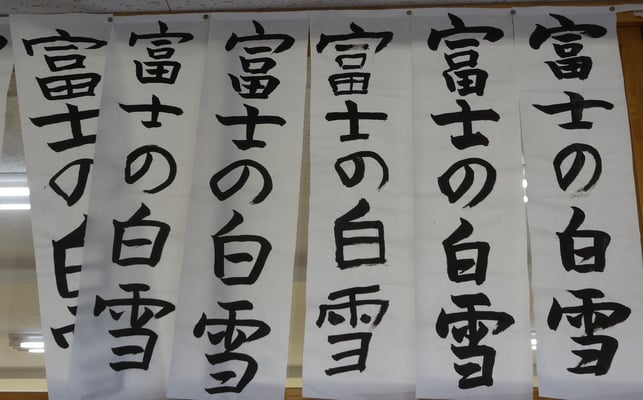 富士の白雪
富士の白雪
富士の白雪
富士の白雪
富士の白雪
富士の白